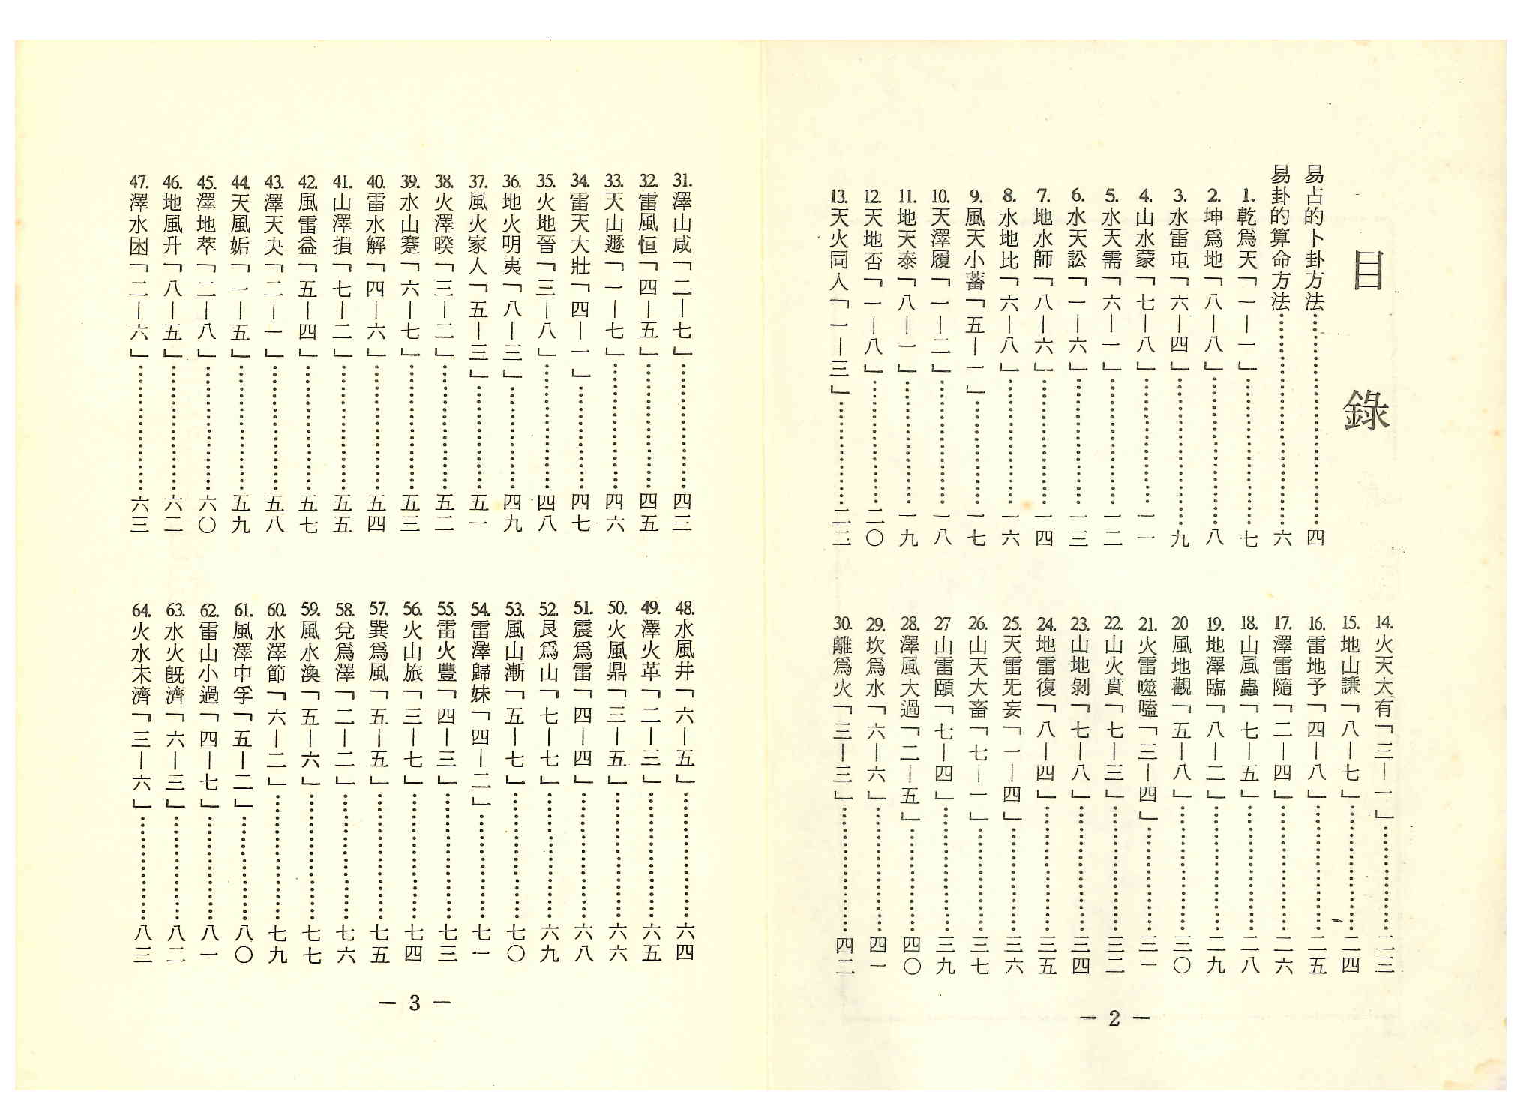 目錄
易占的卜卦方法……………………四
易卦的算命方法……………………六
1.乾爲天「一—一」……………七
2.坤爲地「八—八」……………八
3.水雷屯「六—四」……………九
4.山水蒙「七—八」……………一一
5.水天需「六—一」……………一二
6.水天訟「一—六」……………一三
7.地水師「八—六」……………一四
8.水地比「六—八」……………一六
9.風天小蓄「五—一」……………一七
10.天澤履「一—二」……………一八
11.地天泰「八—一」……………一九
12.天地否「一—八」……………二〇
13.天火同人「一—三」……………二二
14.火天大有「三—一」……………二三
15.地山謙「八—七」……………二四
16.雷地予「四—八」……………二五
17.澤雷隨「二—四」……………二六
18.山風蟲「七—五」……………二八
19.地澤臨「八—二」……………二九
20風地觀「五—八」……………三〇
21.火雷噬嗑「三—四」……………三一
22山火賁「七—三」……………三二
23.山地剝「七—八」……………三四
24.地雷復「八—四」……………三五
25.天雷无妄「一—四」……………三六
26.山天大畜「七—一」……………三七
27山雷頤「七—四」……………三九
28.澤風大過「二—五」……………四〇
29.坎爲水「六—六」……………四一
30.離爲火「三—三」……………四二
31.澤山咸「二—七」……………四三
32.雷風恒「四—五」……………四五
33.天山遯「一—七」……………四六
34.雷天大壯「四—一」……………四七
35.火地晉「三—八」……………四八
36.地火明夷「八—三」……………四九
37.風火家人「五—三」……………五一
38.火澤暌「三—二」……………五二
39.水山蹇「六—七」……………五三
40.雷水解「四—六」……………五四
41.山澤損「七—二」……………五五
42.風雷益「五—四」……………五七
43.澤天夬「二—一」……………五八
44.天風姤「一—五」……………五九
45.澤地萃「二—八」……………六〇
46.地風升「八—五」……………六二
47.澤水困「二—六」……………六三
48.水風井「六—五」……………六四
49.澤火革「二—三」……………六五
50.火風鼎「三—五」……………六六
51.震爲雷「四—四」……………六八
52.艮爲山「七—七」……………六九
53.風山漸「五—七」……………七〇
54.雷澤歸妹「四—二」……………七一
55.雷火豐「四—三」……………七三
56.火山旅「三—七」……………七四
57.巽爲風「五—五」……………七五
58.兌爲澤「二—二」……………七六
59.風水渙「五—六」……………七七
60.水澤節「六—二」……………七九
61.風澤中孚「五—二」……………八〇
62.雷山小過「四—七」……………八一
63.水火旣濟「六—三」……………八二
64.火水未濟「三—六」……………八三
— 2 —
— 3 —